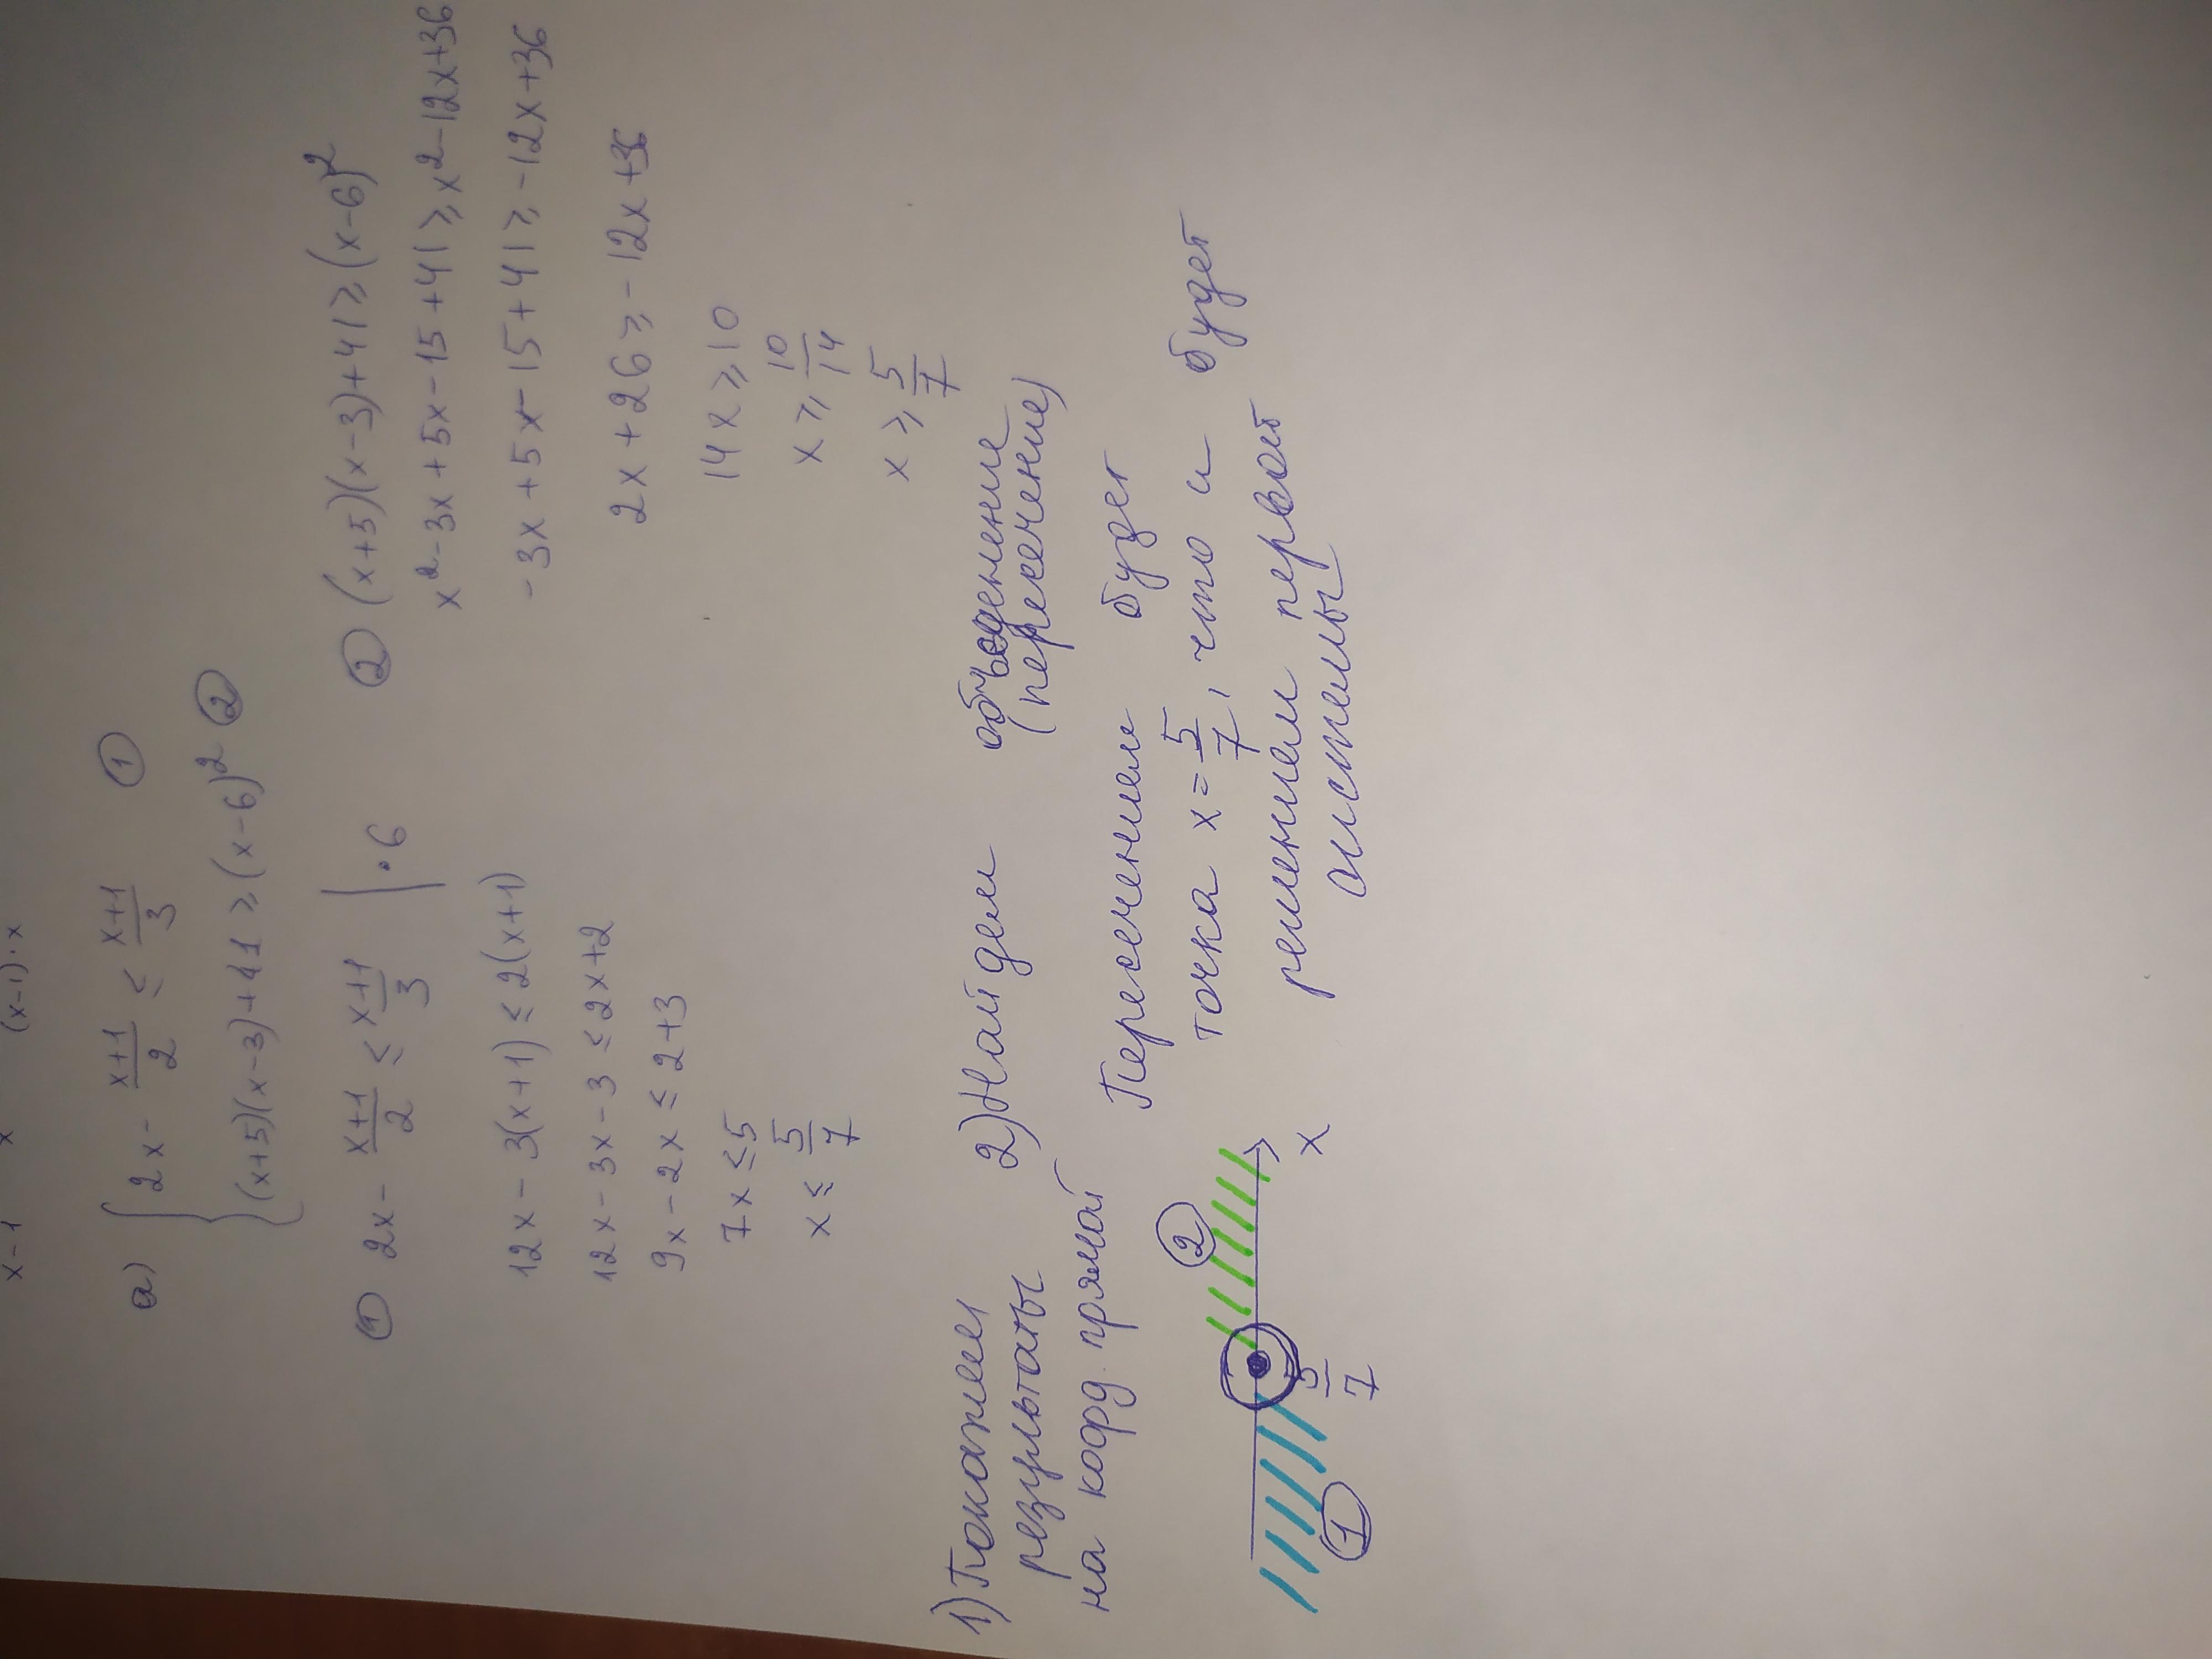 x-1 x (x-1)·x
а) { 2x - \frac{x+1}{2} ≤ \frac{x+1}{3} ①
(x+5)(x-3)+41 ≥ (x-6)² ②
① 2x - \frac{x+1}{2} ≤ \frac{x+1}{3} | ·6
12x - 3(x+1) ≤ 2(x+1)
12x - 3x - 3 ≤ 2x+2
9x - 2x ≤ 2+3
7x ≤ 5
x ≤ \frac{5}{7}
② (x+5)(x-3)+41 ≥ (x-6)²
x²-3x+5x-15+41 ≥ x²-12x+36
-3x+5x-15+41 ≥ -12x+36
2x+26 ≥ -12x+36
14x ≥ 10
x ≥ \frac{10}{14}
x ≥ \frac{5}{7}
1) Покажем
результаты
на коорд. прямой
②
x
\frac{5}{7}
①
2) Найдем объединение
(пересечение)
Пересечением будет
точка x = \frac{5}{7}, что и будет
решением первой
системы